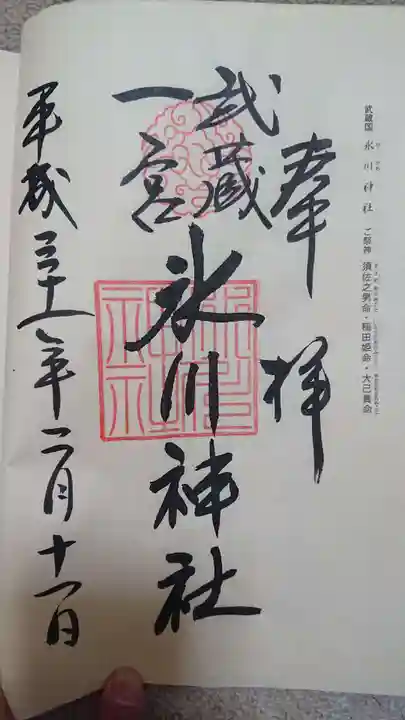 武蔵国 氷川神社 ご祭神 須佐之男命・稲田姫命・大己貴命
奉拝
武蔵
一宮
氷川神社
平成三十一年二月十一日